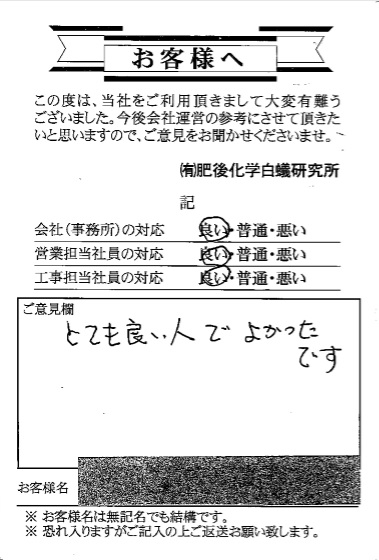 お客様へ
この度は、当社をご利用頂きまして大変有難う
ございました。今後会社運営の参考にさせて頂きた
いと思いますので、ご意見をお聞かせくださいませ。
㈲肥後化学白蟻研究所
記
会社(事務所)の対応 良い・普通・悪い
営業担当社員の対応 良い・普通・悪い
工事担当社員の対応 良い・普通・悪い
ご意見欄
とても良い人で よかった
です
お客様名
※ お客様名は無記名でも結構です。
※ 恐れ入りますがご記入の上ご返送お願い致します。